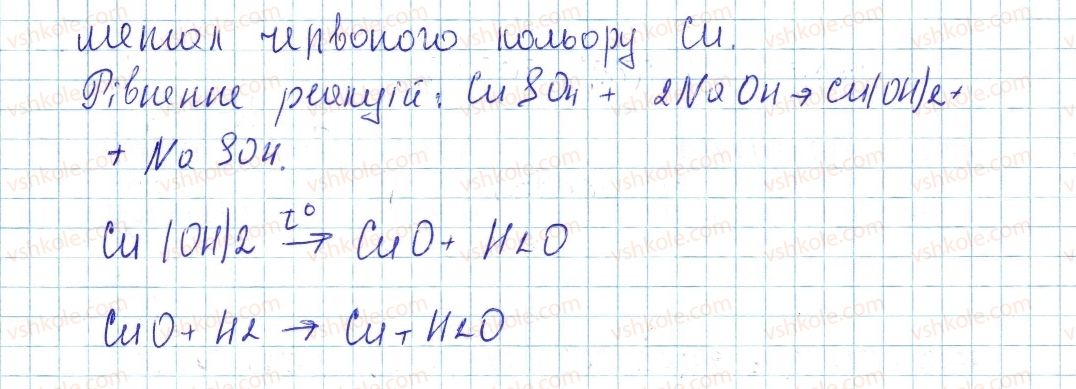 метал червоного кольору Cu.
Рівнення реакцій: CuSO4 + 2NaOH → Cu(OH)2 +
+ NaSO4.
Cu(OH)2 t° → CuO + H2O
CuO + H2 → Cu + H2O